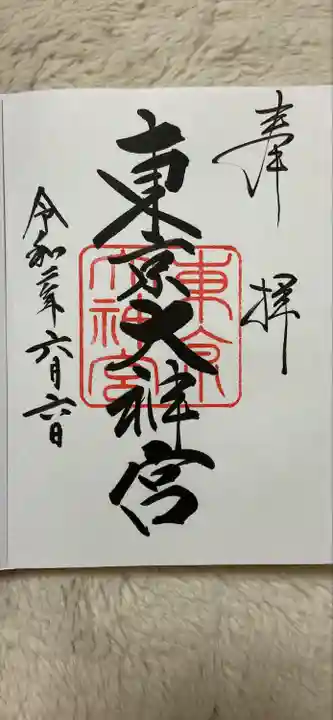 奉拝
東京大神宮
東京
大神宮
令和二年六月六日